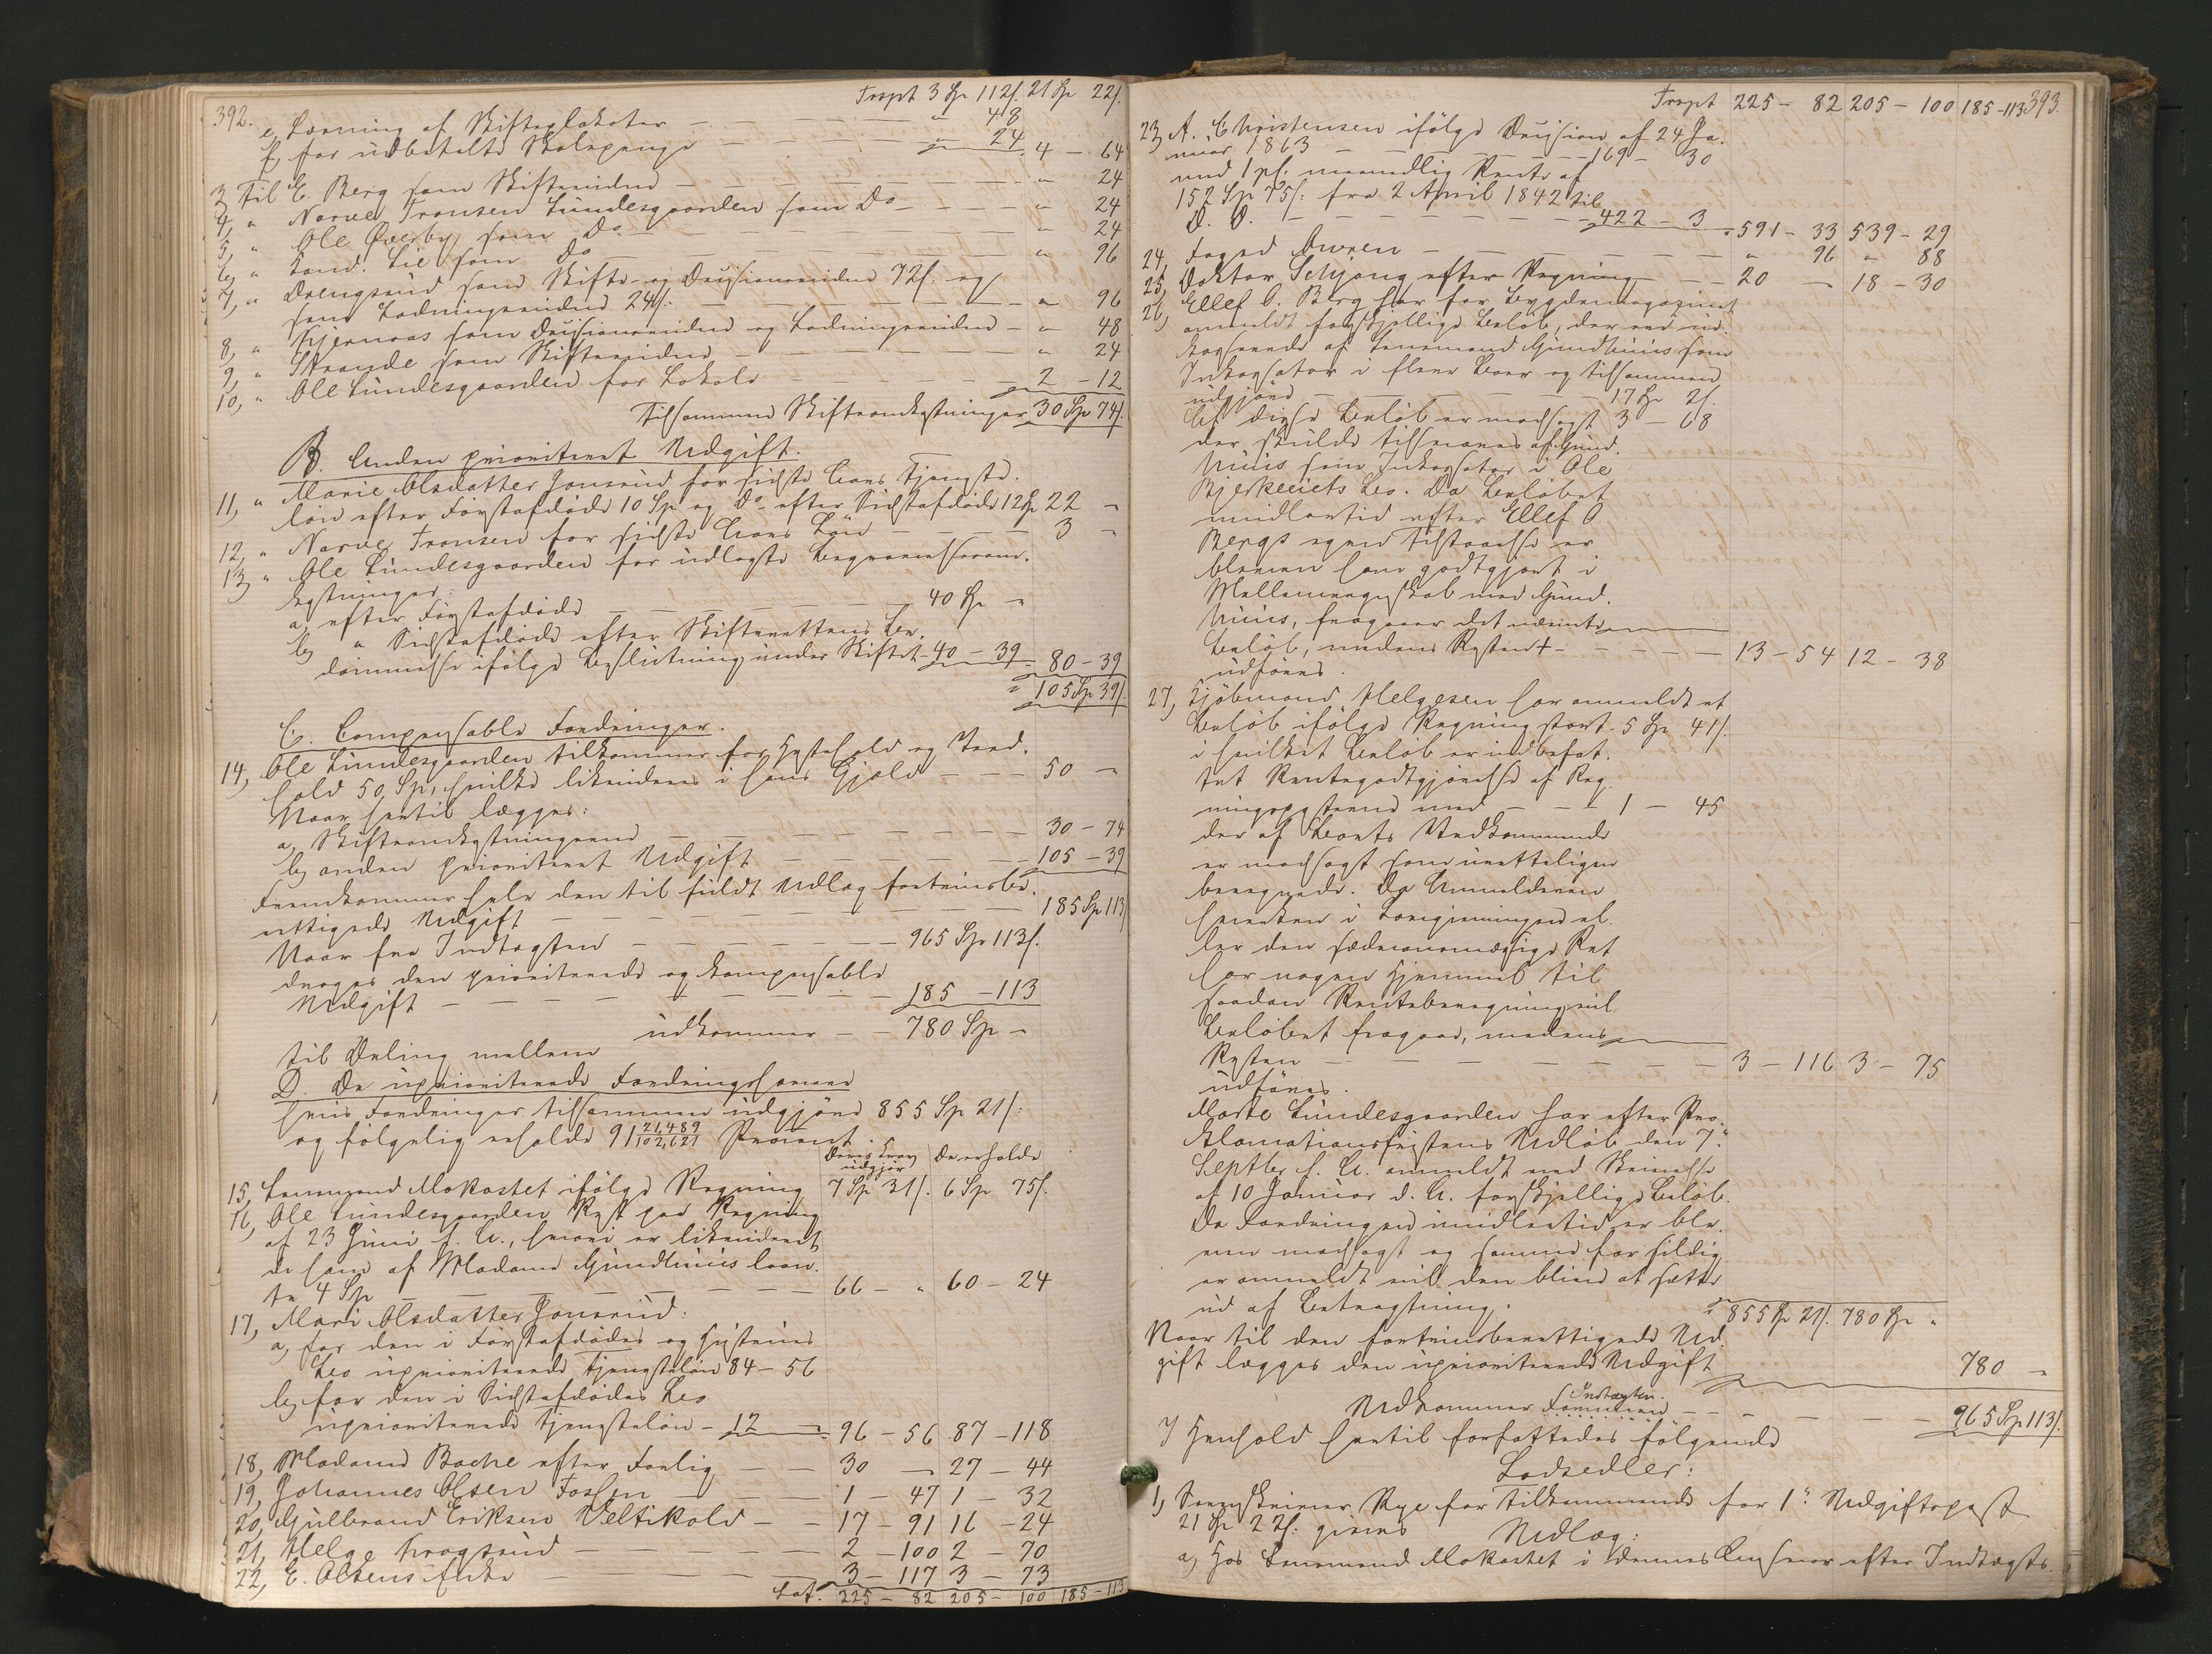 392.
Trspt 3 Sp 112 s. 21 Sp 22 s.
e, Læsning af Skifteplakater — — — " 48
f, for udbetalte Stolepenge — — — " 24 4 – 64
3, Til C. Berg som Skiftevidne — — — " 24
4, " Narve Tronsen Lundesgaarden som Do — — " 24
5, " Ole Qverby som Do — — — " 24
6, " Cand. Lie som Do — — — " 96
7, " Drengsrud som Skifte- og Decisionsvidne 72 s. og
som Lodningsvidne 24 s: — — — " 96
8, " Stjernaas som Decisionsvidne og Lodningsvidne — " 48
9, " Strande som Skiftevidne — — — " 24
10, " Ole Lundesgaarden for Lokale — — — 2 – 12
Tilsammen Skifteomkostninger 30 Sp 74 s.
B. Anden prioriteret Udgift.
11, " Marie Olsdatter Jonsrud for sidste Aars Tjeneste-
løn efter Førstafdøde 10 Sp og Do efter Sidstafdøde 12 Sp 22 "
12, " Narve Tronsen for sidste Aars Løn — — — 3 "
13, " Ole Lundesgaarden for udlagte Begravelsesom-
kostninger:
a, efter Førstafdøde — — — 40 Sp "
b, " Sidstafdøde efter Skifterettens Be-
dømmelse ifølge Beslutning under Skiftet 40 – 39 80 – 39
105 Sp 39 s.
C. Compensable Fordringer.
14, Ole Lundesgaarden tilkommer for Hestehold og Vand-
hold 50 Sp, hvilke likvideres i hans Gjæld — — 50 "
Naar hertil lægges:
a, Skifteomkostningerne — — — 30 – 74
b, anden prioriteret Udgift — — — 105 – 39
Fremkommer hele den til fuldt Udlæg fortrinsbe-
rettigede Udgift — — — 185 Sp 113
Naar fra Indtægten — — — 965 Sp 113 s.
drages den prioriterede og kompensable
Udgift — — — 185 – 113
udkommer — — 780 Sp "
til Deling mellem
D. De uprioriterede Fordringshavere
hvis Fordringer tilsammen udgjøre 855 Sp 21 s:
og følgelig erholde 91 21,489/102,621 Procent.
Deres Krav udgjør De erholde
15, Lensmand Mokastet ifølge Regning 7 Sp 31 s. 6 Sp 75 s.
16, Ole Lundesgaarden Rest paa Regning
af 23 Juni f. A., hvori er likvideret
de ham af Madame Gundhuus laan-
te 4 Sp — — — 66 – " 60 – 24
17, Mari Olsdatter Jonsrud:
a, for den i Førstafdødes og Hustrues
Bo uprioriterede Tjenesteløn 84 – 56
b, for den i Sidstafdødes Bo
uprioriterede Tjenesteløn – 12 " 96 – 56 87 – 118
18, Madame Bache efter Forlig — — 30 — 27 – 44
19, Johannes Olsen Fossen — — 1 – 47 1 – 32
20, Gulbrand Eriksen Veltikold — — 17 – 91 16 – 24
21, Helge Krogsrud — — — 2 – 100 2 – 70
22, E. Olsens Enke — — — 3 – 117 3 – 73
Lat. 225 – 82 205 – 100 185 – 113
Trspt 225 – 82 205 – 100 185 – 113 393.
23, A. Christensen ifølge Decision af 24 Ja-
nuar 1863 — — — 169 – 30
med 1 pCt. maanedlig Rente af
152 Sp 75 s: fra 2 April 1842 til
D. D. — — — 422 – 3 591 – 33 539 – 29
24, Foged — — — " 96 " 88
25, Doktor Schjong efter Regning — — 20 — 18 – 30
26, Ellef O. Berg har for Bygdemagazinet
anmeldt forskjellige Beløb, der ere ud-
kasserede af Lensmand Gundhuus som
Inkassator i flere Boer og tilsammen
udgjøre — — — 17 Sp 2 s.
Af disse Beløb er modsagt 3 – 68
der skulde tilsvares af Gund-
huus som Inkassator i Ole
Bjerkeeiets Bo. Da Beløbet
imidlertid efter Ellef O
Bergs egen Tilstaaelse er
bleven ham godtgjort i
Mellemregnskab med Gund-
huus, fragaaer det nævnte
Beløb, medens Resten + — — — 13 – 54 12 – 38
udføres.
27, Kjøbmand Helgesen har anmeldt et
Beløb ifølge Regning stort 5 Sp 41 s.
i hvilket Beløb er indbefat-
tet Rentegodtgjørelse af Reg-
ningsposterne med — — – 1 – 45
der af Boets Vedkommende
er modsagt som uretteligen
beregnede. Da Anmelderen
hverken i Lovgivningen el-
ler den sædvansmæssige Ret
har nogen Hjemmel til
saadan Renteberegning vil
Beløbet fragaae, medens
Resten — — — 3 – 116 3 – 75
udføres.
Marte Lundesgaarden har efter Pro-
klamationsfristens Udløb den 7de
Septbr f. A. anmeldt ved Skrivelse
af 10 Januar d. A. forskjellige Beløb.
Da Fordringen imidlertid er ble-
ven modsagt og samme for sildig
er anmeldt vil den blive at sætte
ud af Betragtning.
855 Sp 21 s. 780 Sp "
Naar til den fortrinsberettigede Ud-
gift lægges den uprioriterede Udgift 780 "
Udkommer Summen Indtægten. — — — 965 Sp 113 s.
I Henhold hertil forfattedes følgende
Lodsedler:
1, Sorenskriver Rye for Tilkommende for 1ste Udgiftspost
21 Sp 22 s: gives Udlæg:
a, Hos Lensmand Mokastet i dennes Ansvar efter Indtægts-